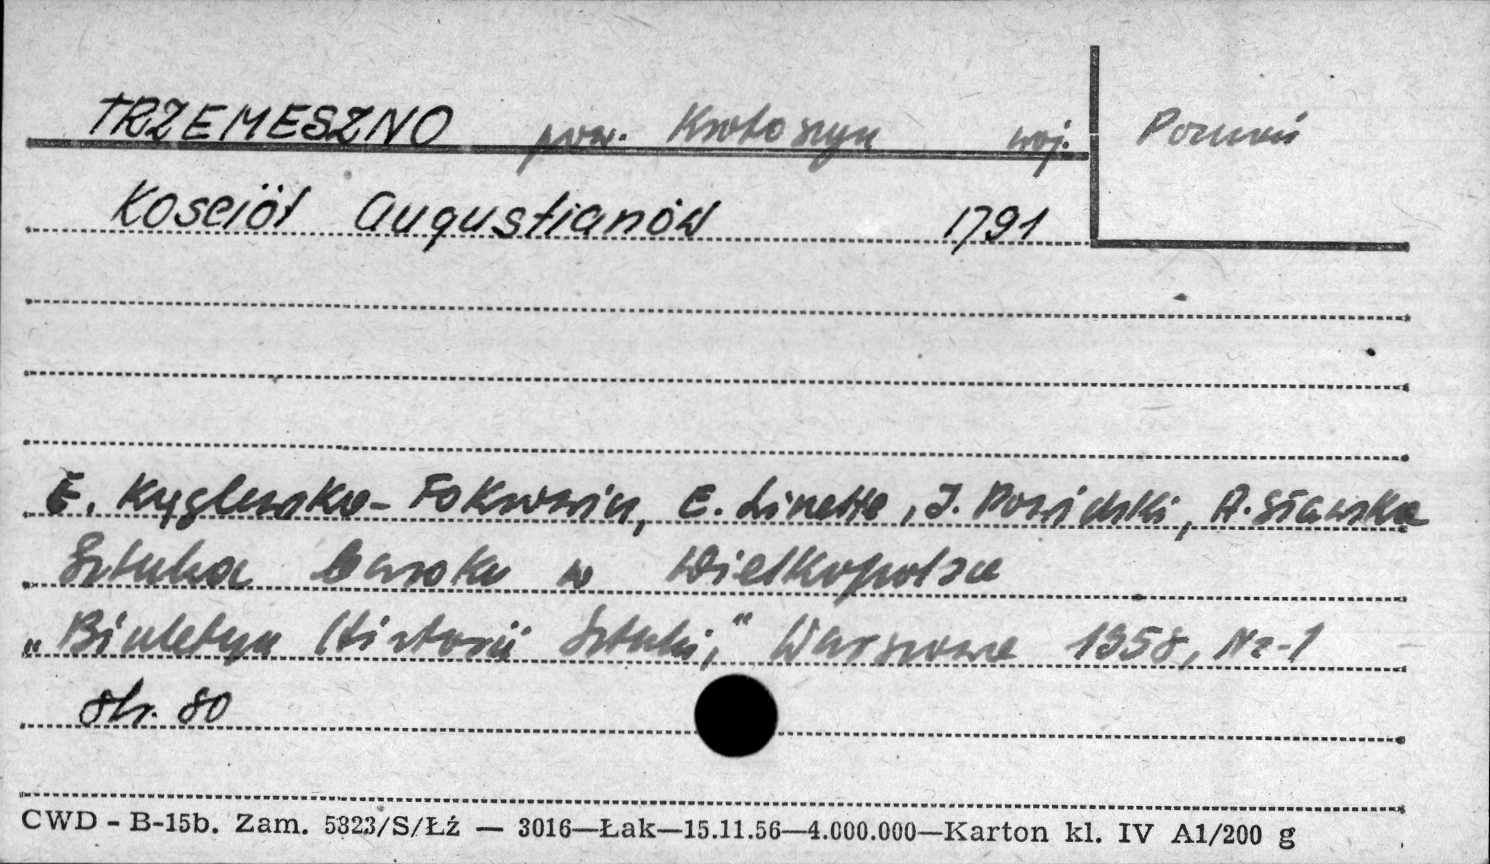 TRZEMESZNO pow. Krotoszyn woj. Poznań
Kościół Augustianów 1791
E. Kręglewska-Fokowicz, E. Linette, J. Powidzki, A. Sławska
Sztuka baroku w Wielkopolsce
„Biuletyn Historii Sztuki," Warszawa 1958, Nr-1
str. 80
CWD - B-15b. Zam. 5323/S/Łź — 3016—Łak—15.11.56—4.000.000—Karton kl. IV A1/200 g